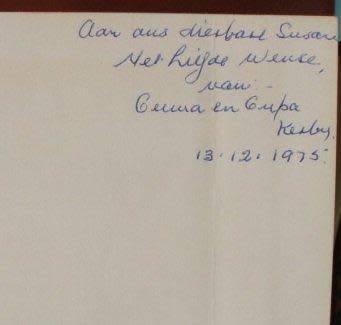 Aan ons dierbare Susan
Met liefde Wense,
van -
Ouma en Oupa
Kerby.
13.12.1975.